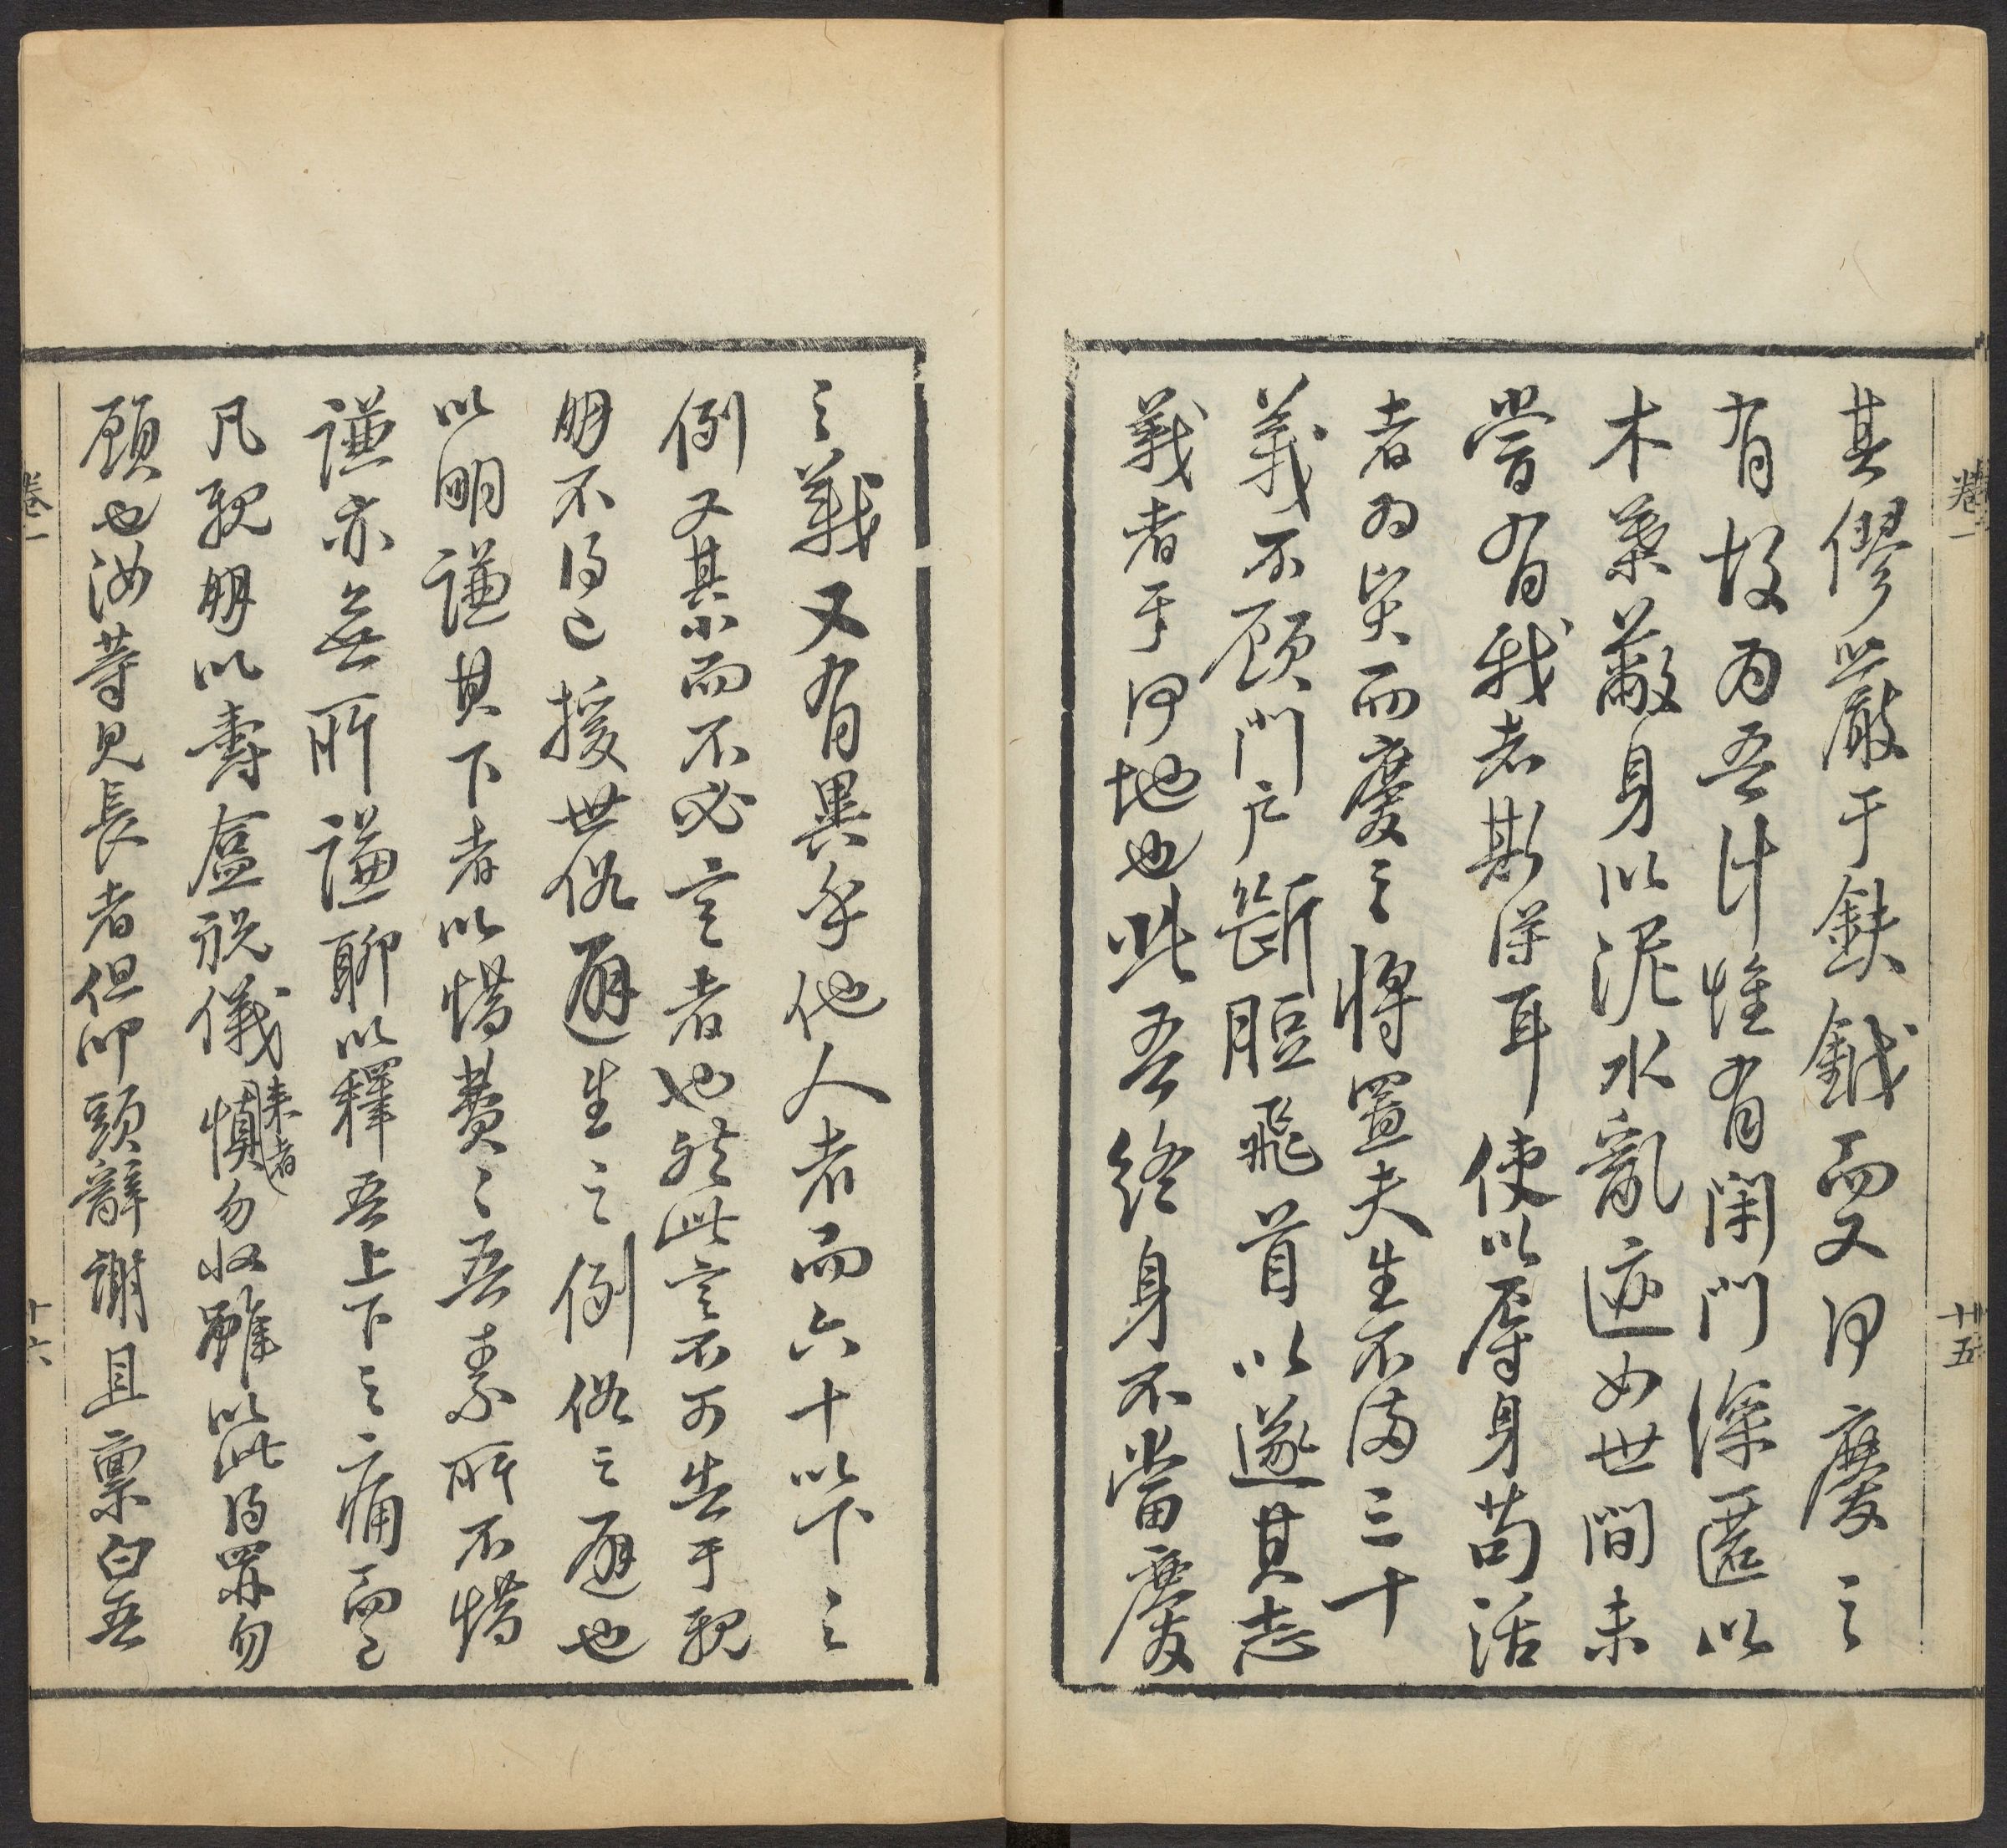 卷一
十五
其僇嚴于鈇鉞而又何慶之
有故為吾計惟有閉門深匿以
木葉蔽身以泥水亂迹如世間未
嘗有我者斯得耳使以辱身苟活
者為而慶之將置夫生不滿三十
義不顧門戶斷脰飛首以遂其志
義者于何地也此吾終身不當慶
之義又有異乎他人者而六十以下之
例又其小而不必言者也然此言不可告于親
朋不得已援世俗避生之例俗之避也
以明謙其下者以惜費〻吾素所不惜
謙亦無所謙聊以釋吾上下之痛而已
凡親朋以壽盒祝儀來者慎勿收雖以此得罪勿
顧也汝等見長者但叩頭辭謝且稟白吾
卷一
十六